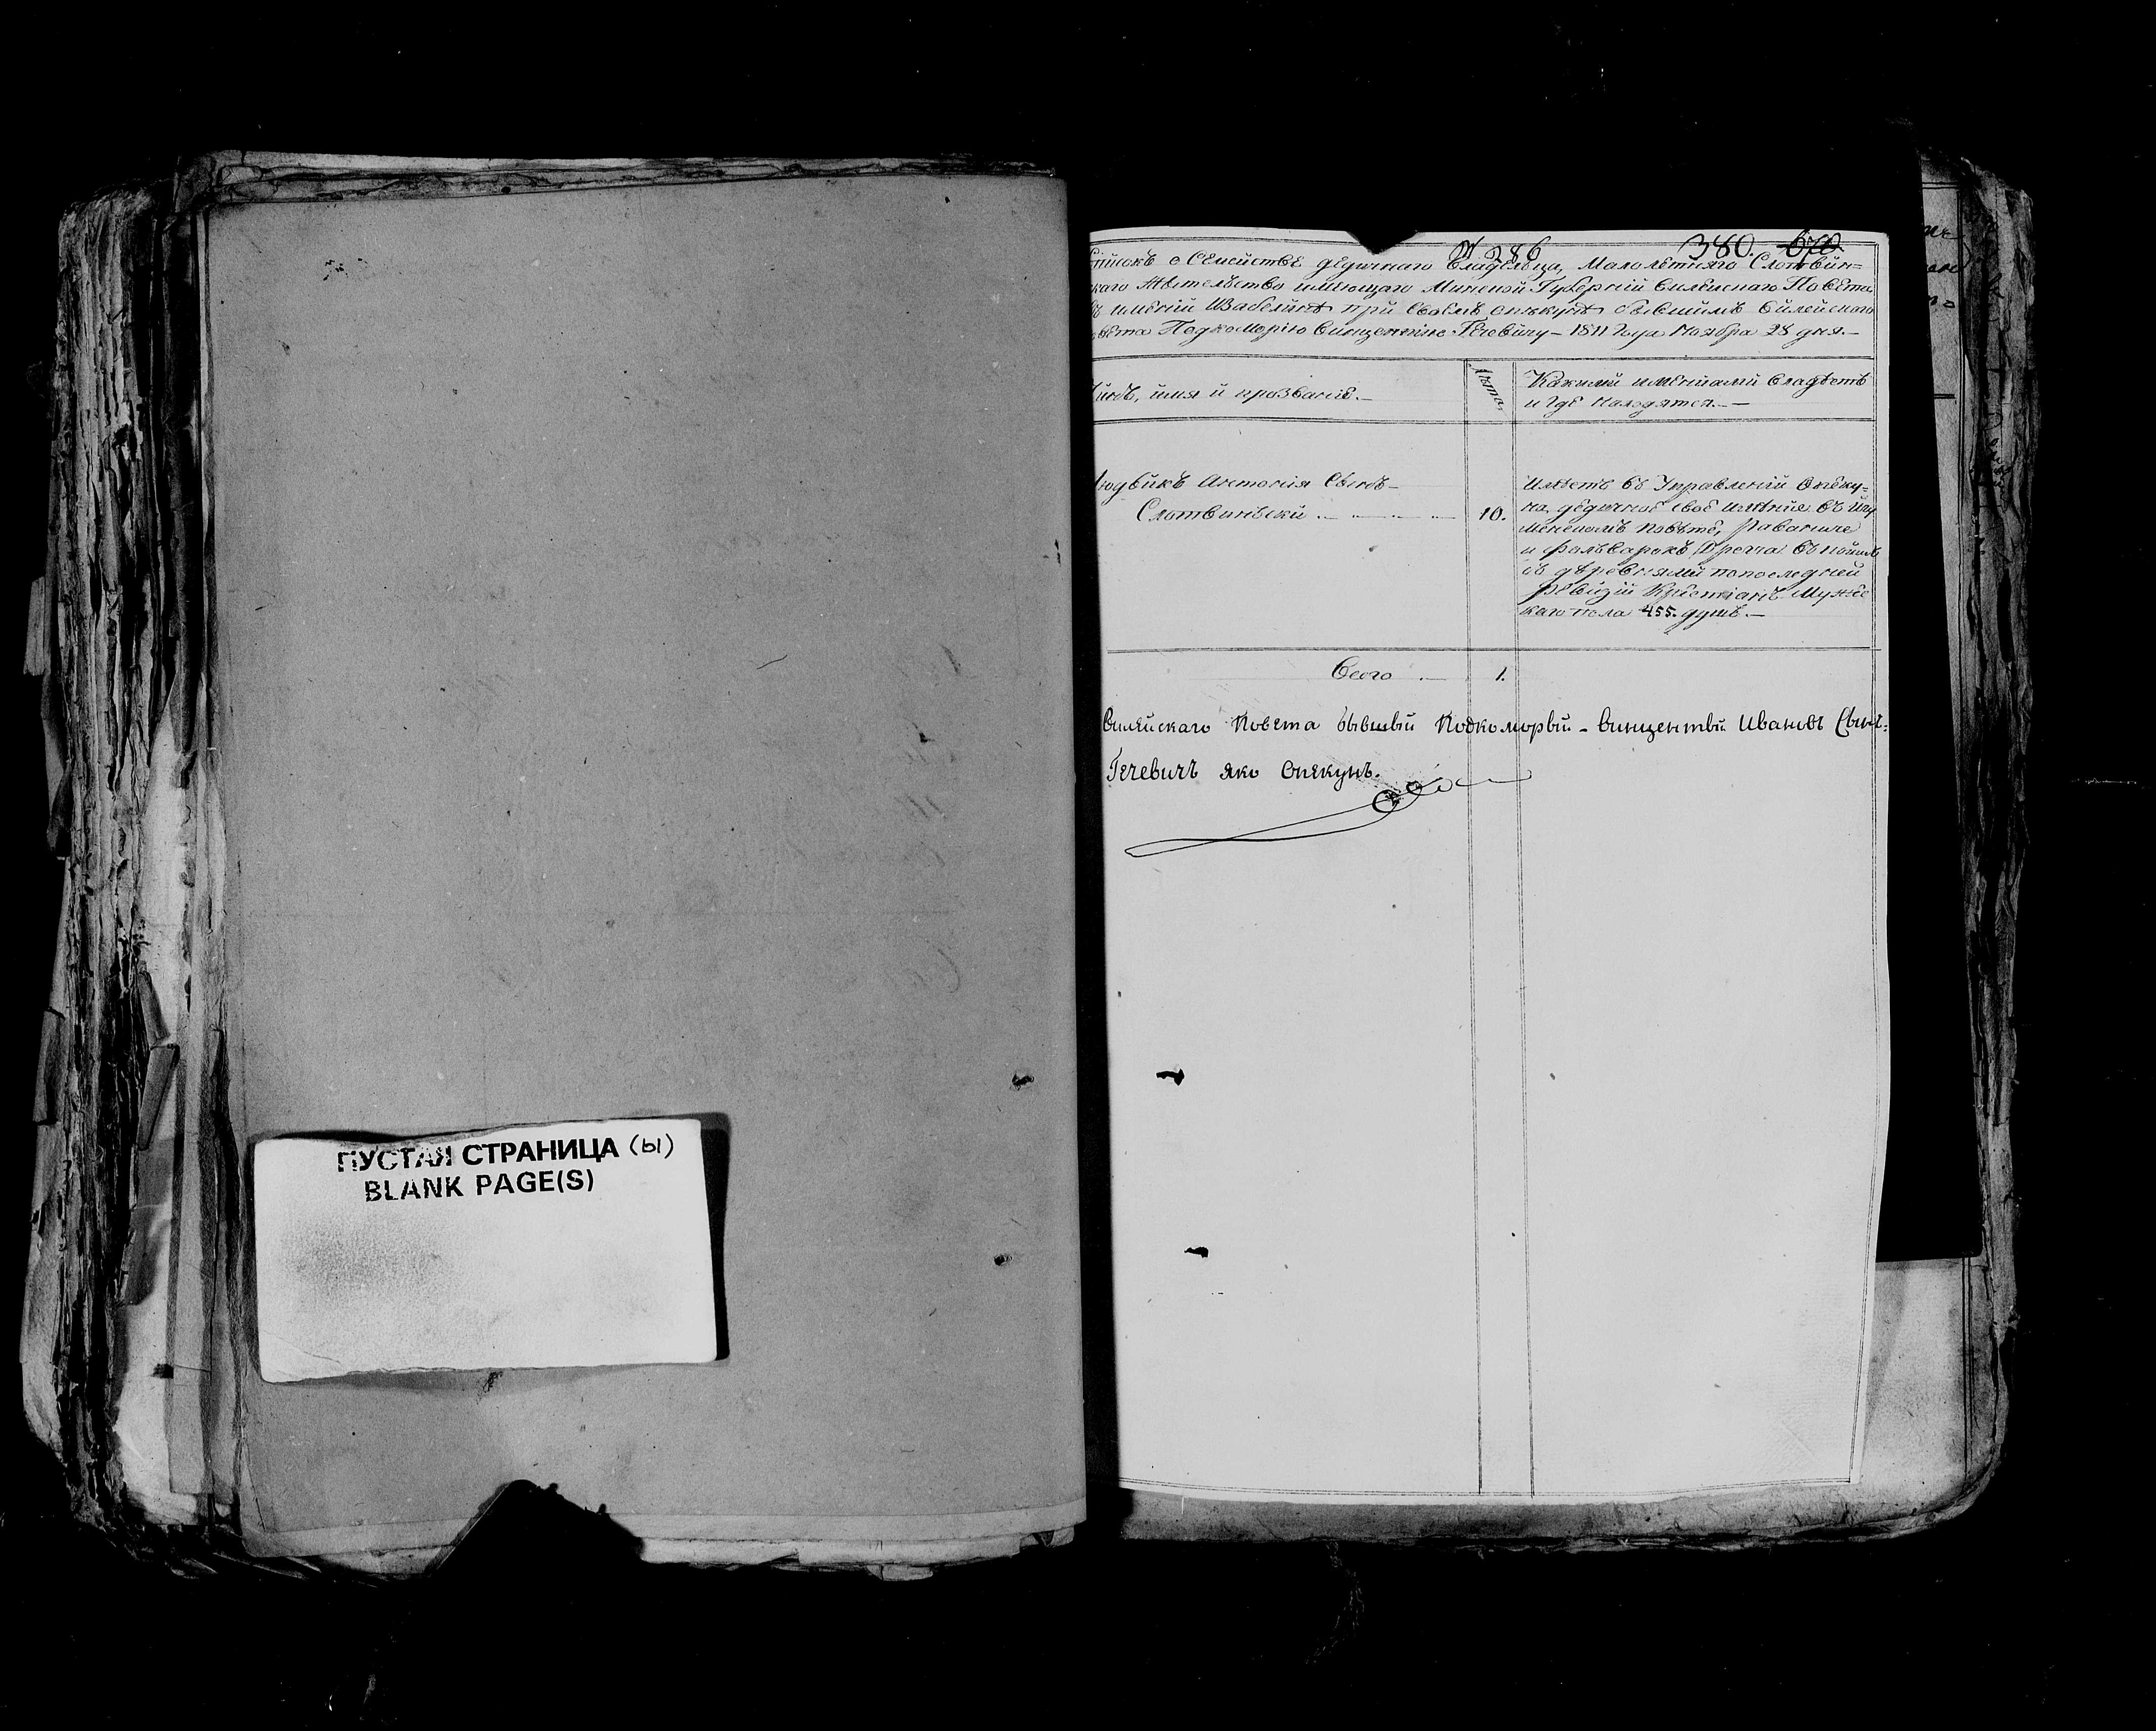 ПУСТАЯ СТРАНИЦА (ы)
BLANK PAGE(S)
№ 286 380. 670
Списокъ о Семействе дедичнаго Владельца, Малолетняго Слотвин=
скаго Жительство имеющаго Минской Губерній Вилейскаго Повета
въ именій Изабелинѣ при своемъ опекунѣ бывшимъ Вилейскаго
Повета Подкоморію Винцентию Гечевичу — 1811 Года Ноября 28 дня. —
Чинъ, имя й прозваніе. —
Лета.
Какими именіами владеетъ
и где находятся. —
Людвикъ Антонія Сынъ —
Слотвинскій . — 10.
Имеетъ въ Управленій Опеку=
на дедичное свое именіе въ Игу
менскомъ повѣте, Раваничe
и фольварокъ Дречa въ
съ деревнями по последней
Ревизій Крестіанъ Мужес
каго пола 455. душъ. —
Всего . — 1.
Вилейскаго Повета бывшый Подкоморый - Винцентый Ивановъ Сынъ:
Гечевичъ яко Опекунъ.